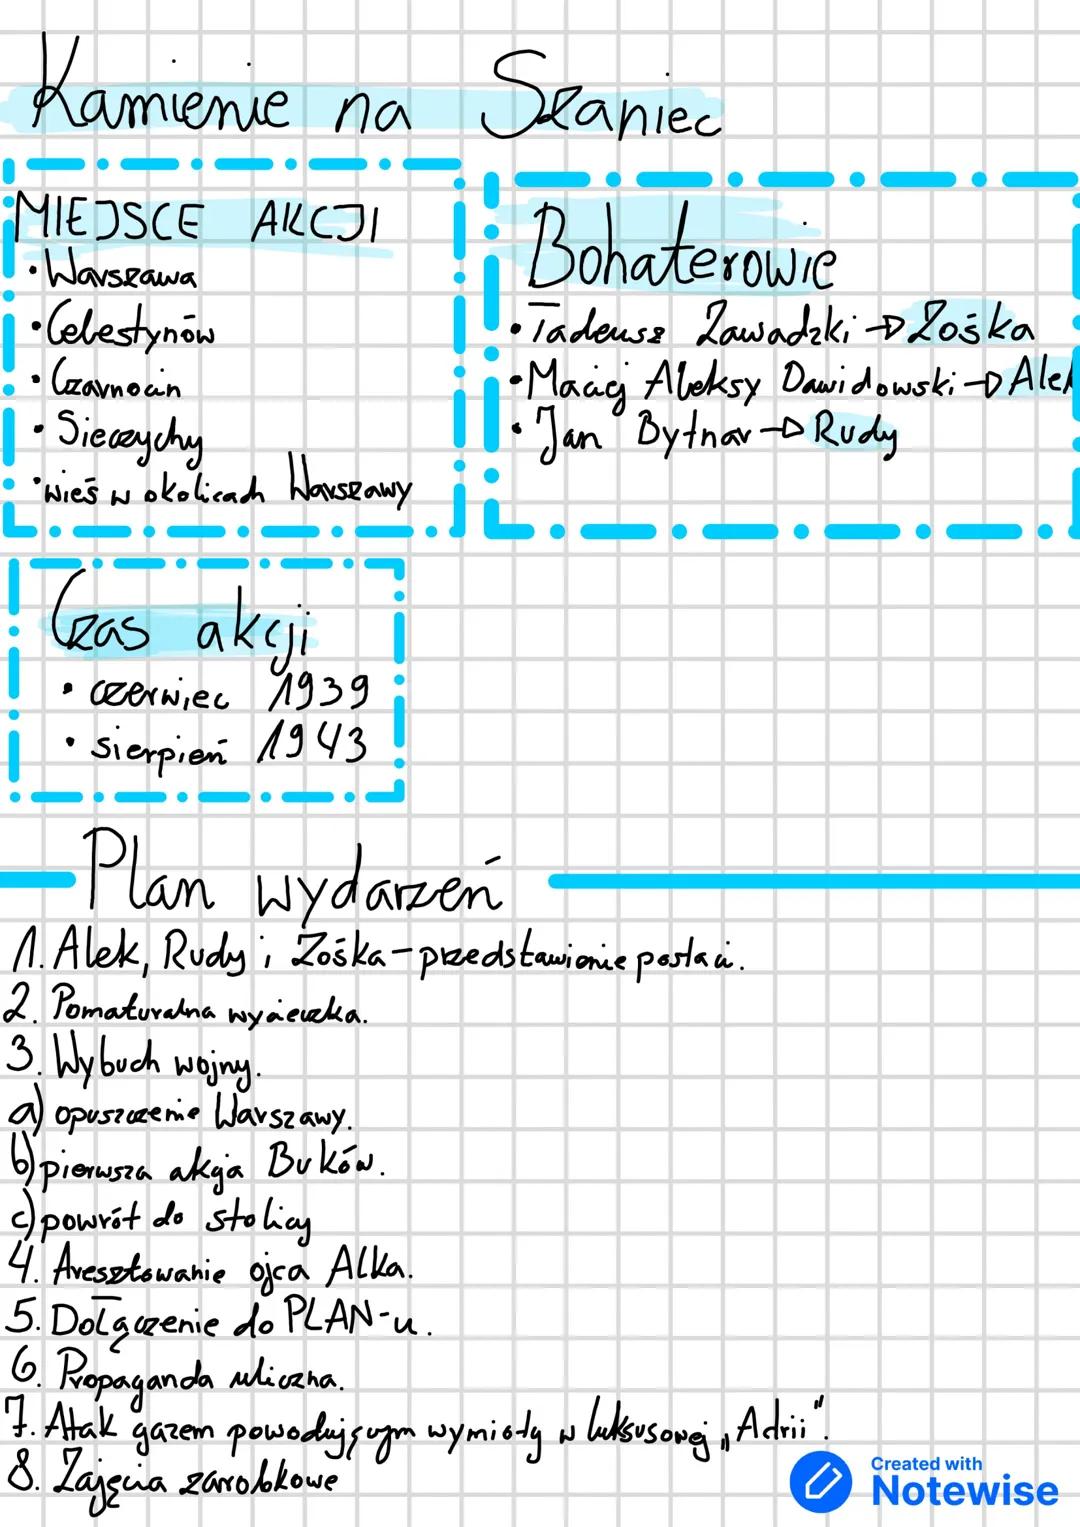 Kamienie na Szaniec
MIEJSCE AKCJI
• Warszawa
• Celestynów
• Czarnocin
• Sieczychy
• wieś w okolicach Warszawy
Bohaterowie
• Tadeusz Zawadzki → Zośka
• Maciej Aleksy Dawidowski → Alek
• Jan Bytnar → Rudy
Czas akcji
• czerwiec 1939
• sierpień 1943
Plan wydarzeń
1. Alek, Rudy i Zośka - przedstawienie postaci.
2. Pomaturalna wycieczka.
3. Wybuch wojny.
a) opuszczenie Warszawy.
b) pierwsza akcja Buków.
c) powrót do stolicy
4. Aresztowanie ojca Alka.
5. Dołączenie do PLAN-u.
6. Propaganda uliczna.
7. Atak gazem powodującym wymioty w luksusowej „Adrii".
8. Zajęcia zarobkowe
Created with
Notewise